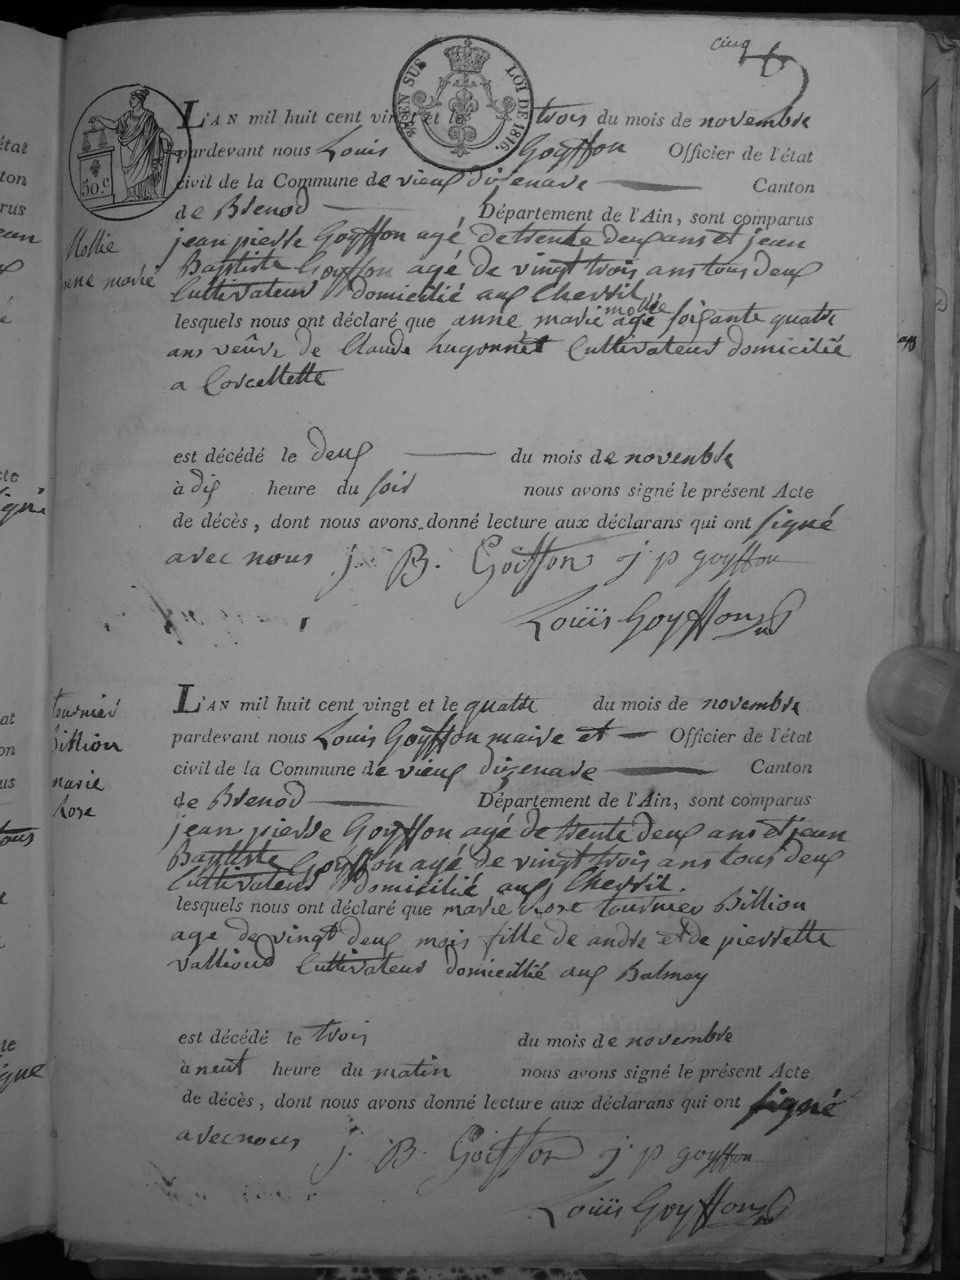 cinq
TIMB EN SUS LOI DE 1816.
30.c
L'AN mil huit cent vingt et le trois du mois de novembre
pardevant nous Louis Goyffon Officier de l'état
civil de la Commune de vieux dizenave Canton
de Brenod Département de l'Ain, sont comparus
Mollie
anne marie
jean pierre Goyffon agé de trente deux ans et jean
Baptiste Goyffon agé de vingt trois ans tous deux
Cultivateurs domicilié aux Cherril
lesquels nous ont déclaré que anne marie mollie agé soixante quatre
ans veûve de Claude hugonnet Cultivateurs domicilié
a Corcellette
est décédé le deux du mois de novenbre
à dix heure du soir nous avons signé le présent Acte
de décès, dont nous avons donné lecture aux déclarans qui ont signé
avec nous j. B. Goiffon j p goyffon
Louïs Goyffon
tournier
Billion
marie
Rose
L'AN mil huit cent vingt et le quatre du mois de novembre
pardevant nous Louis Goyffon maire et Officier de l'état
civil de la Commune de vieux dizenave Canton
de Brenod Département de l'Ain, sont comparus
jean pierre Goyffon agé de trente deux ans et jean
Baptiste Goyffon agé de vingt trois ans tous deux
Cultivateurs domicilié aux Cherril.
lesquels nous ont déclaré que marie Rose tournier Billion
age de vingt deux mois fille de andre et de pierrette
vallioud Cultivateurs domicillié aux Balmay
est décédé le trois du mois de novembre
à neuf heure du matin nous avons signé le présent Acte
de décès, dont nous avons donné lecture aux déclarans qui ont signé
avec nous j. B. Goiffon j p goyffon
Louïs Goyffon